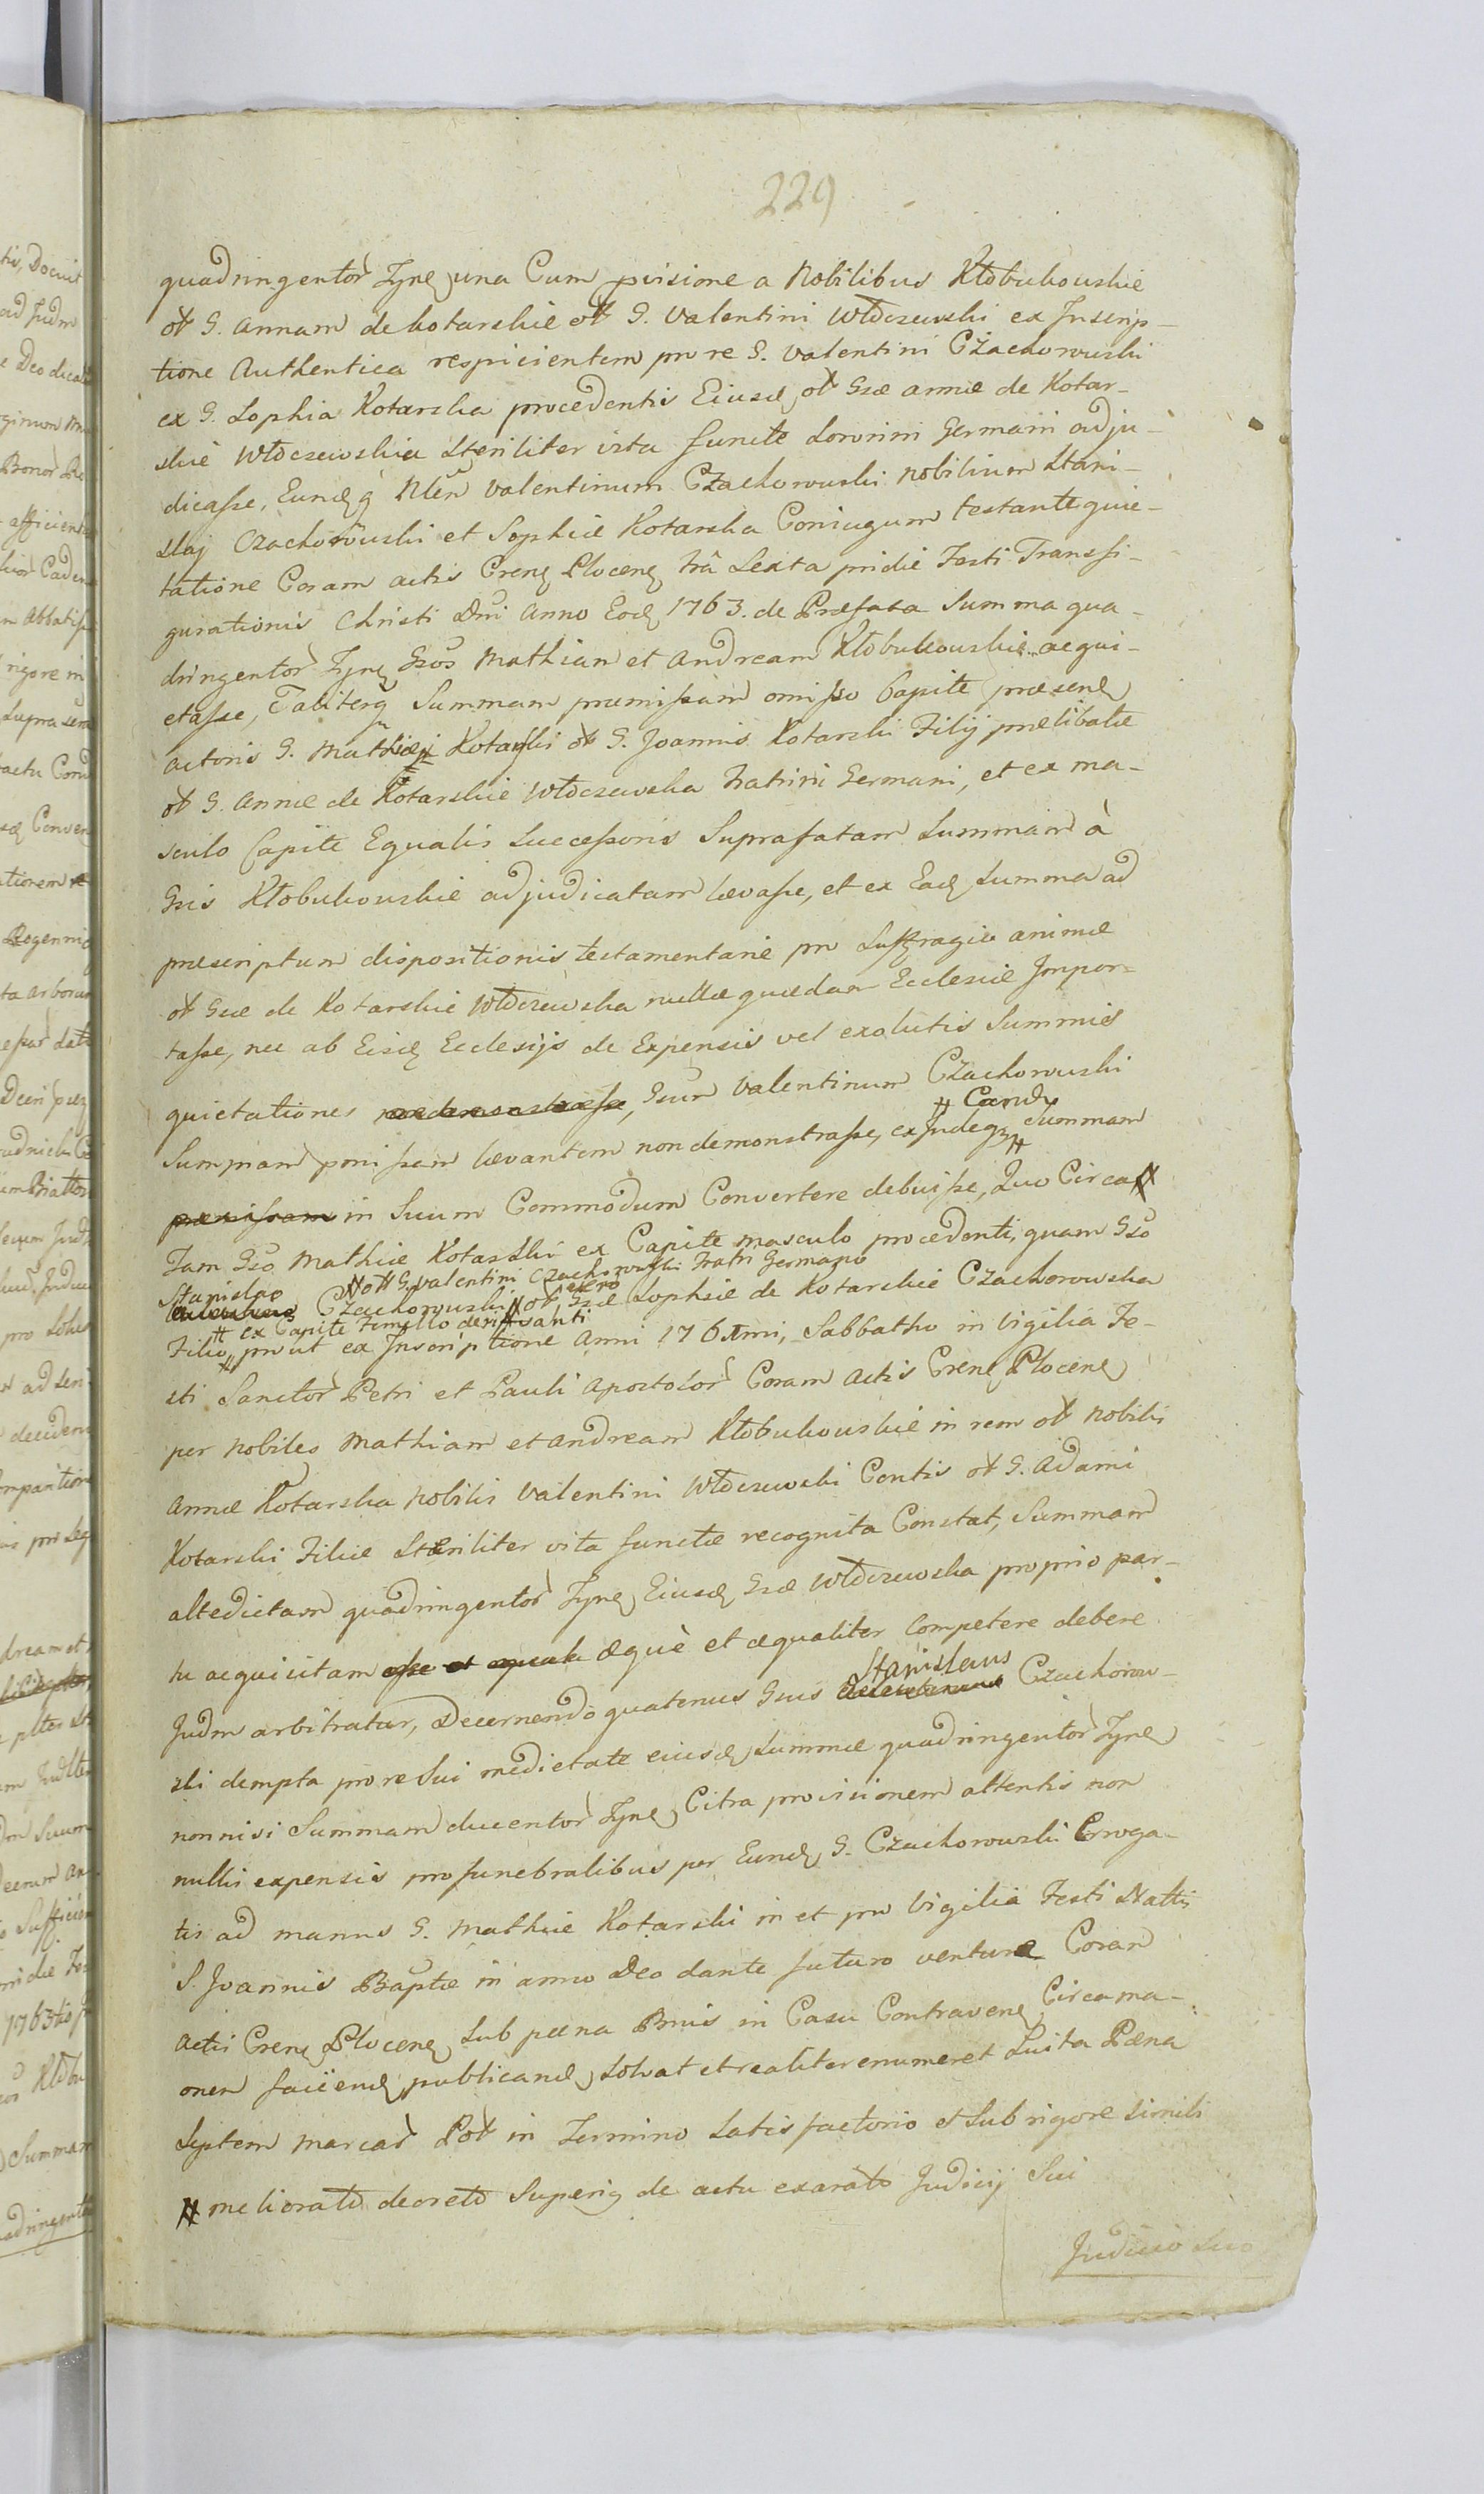 229
quadringentor Fynę una Cum pvisione a Nobilibus Kłobukowskie
ol G. Annam de Kotarskie ol G. Valentini Włoczewski ex Inscrip-
tione Authentica respicientem pro re G. Valentini Czachorowski
ex G. Sophia Kotarska procedentis Eiusd ol Gsæ Annæ de Kotar-
skie Włoczewskia Steriliter vita functæ Sororini Germani adju-
dicasse, Eundq Nlem Valentinum Czachorowski Nobilium Stani-
slaj Czachorowski et Sophiæ Kotarska Coniugum testante quie-
tatione Coram actis Crenę Plocenę fra Sexta pridie Festi Transfi-
gurationis Christi Dni Anno Eod 1763. de Præfata Summa qua-
dringentor Fynę Gsos Mathiam et Andream Kłobukowskie acqui-
etasse, Taliterq Summam præmissam omisso Capite præsenę
actoris G. Mathiæ Kotarski ol G. Joannis Kotarski Filij prælibatæ
ol G. Annæ de Kotarskie Włoczewska Fratrini Germani, et ex ma-
sculo Capite Equalis Successoris Suprafatam Summam à
Gsis Kłobukowskie adjudicatam levasse, et ex Ead Summa ad
præscriptum dispositionis testamentariæ pro Suffragio animæ
ol Gsæ de Kotarskie Włoczewska nullæ quædam Ecclesiæ Impor-
tasse, nec ab Eisd Ecclesijs de Expensis vel exolutis Summis
quietationes Gsum Valentinum Czachorowski
# Cand
Summam pmissam levantem non demonstrasse, exIndeq # Summam
præmissam in Suum Commodum Convertere debuisse, Quo Circa #
Tam Gso Mathiæ Kotarski ex Capite masculo procedenti, quam Gso
Stanislao # ol G. Valentini Czachorowski Fratri Germano
Czachorowski # ol Gsæ vero Sophiæ de Kotarskie Czachorowska
# ex Capite Femello
Filio, # prout ex Inscriptione Anni 176 mi, Sabbatho in Vigilia Fe-
sti Sanctor Petri et Pauli Apostolor Coram Actis Crenę Plocenę
per Nobiles Mathiam et Andream Kłobukowskie in rem ol Nobilis
Annæ Kotarska Nobilis Valentini Włoczewski Contis ol G. Adami
Kotarski Filiæ Steriliter vita functæ recognita Constat, Summam
altedictam quadringentor Fynę Eiusd Gsæ Włoczewska proprio par-
tu acquisitam esse et æquè et æqualiter Competere debere
Judm arbitratur, Decernendo quatenus Gsus Stanislaus Czachorow-
ski dempta pro re Sui medietate eiusd Summæ quadringentor Fynę
nonnisi Summam ducentor Fynę Citra provisionem attentis non
nullis expensis pro funebralibus per Eund G. Czachorowski Erroga-
tis ad manus G. Mathiæ Kotarski in et pro Vigilia Festi Nattis
S. Joannis Baptæ in anno Deo dante futuro ventura Coram
Actis Crenę Plocenę Sub pæna Bnis in Casu Contravenę Circa ma-
onem faciend publicand, Solvat et realiter enumeret Luita Pæna
Septem Marcar Pol in Termino Satisfactorio et Sub rigore simili
# meliorato decreto Superiq de actu exarato Judicij Sui
Judicio Suo